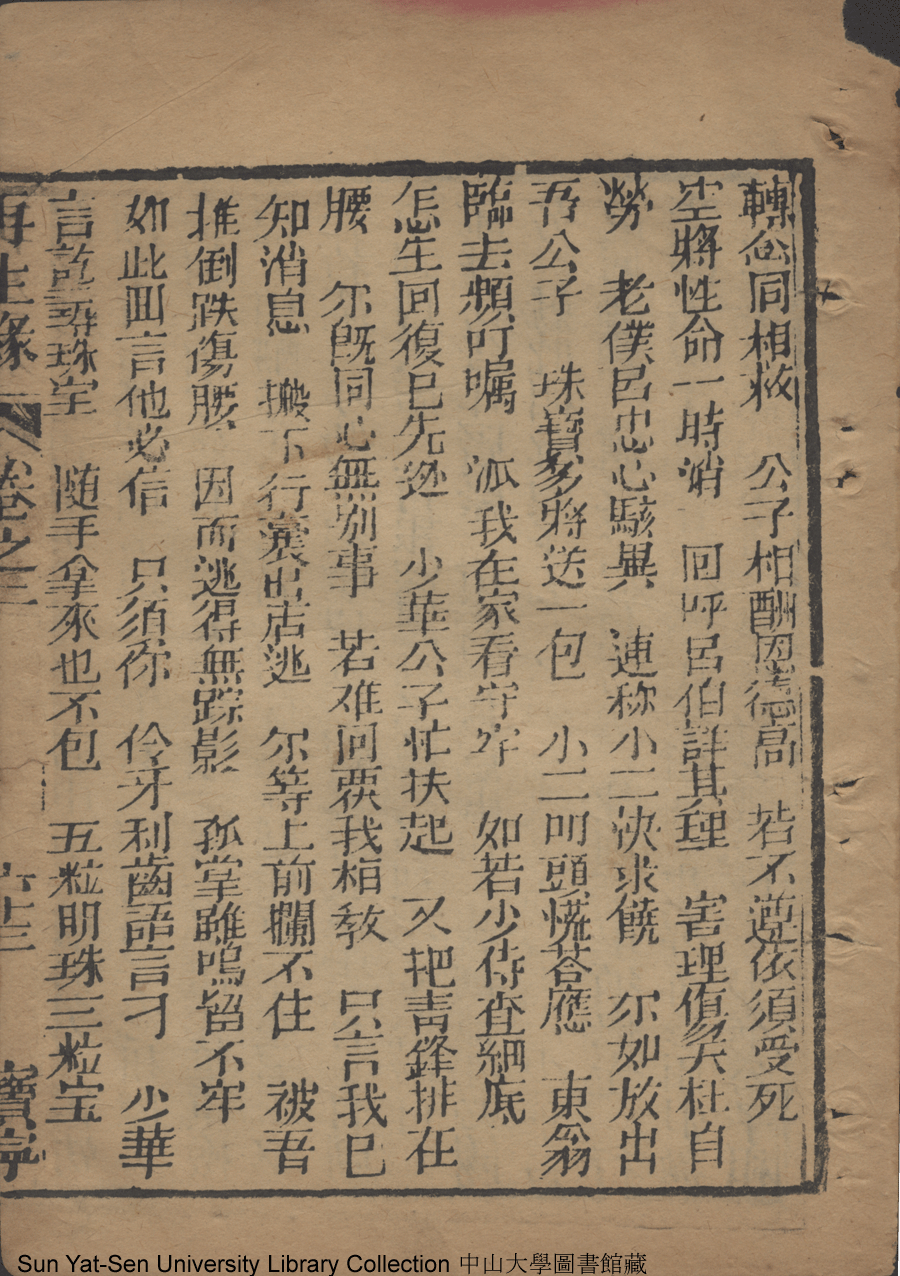 轉念同相救　公子相酬恩德高　若不遵依須受死
空將性命一時消　回呼呂伯詳其理　害理傷天杜自
勞　老僕呂忠心駭異　連称小二快求饒　尔如放出
吾公子　珠寶多將送一包　小二叩頭慌荅應　東翁
臨去頻叮嘱　派我在家看守牢　如若少待查細底
怎生回復已先逃　少華公子忙扶起　又把青鋒排在
腰　尔既同心無别事　若难回覄我相教　只言我已
知消息　搬下行囊出店逃　尔等上前攔不住　被吾
推倒跌傷腰　因而逃得無踪影　孤掌雖鳴留不牢
如此回言他必信　只須你　伶牙利齒語言刁　少華
言訖尋珠宝　随手拿來也不包　五粒明珠三粒宝
再生緣　卷之三　六十三　寶寧
Sun Yat-Sen University Library Collection 中山大學圖書館藏